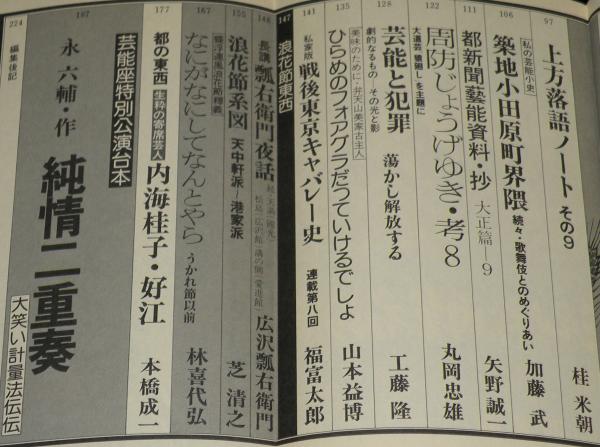 97
上方落語ノート その9 桂 米朝
106
[私の芸能小史] 築地小田原町界隈 続々・歌舞伎とのめぐりあい 加藤 武
111
都新聞藝能資料・抄 大正篇—9 矢野誠一
122
周防じょうげゆき・考8 丸岡忠雄
大道芸「猿廻し」を主題に
128
芸能と犯罪 蕩かし解放する 工藤 隆
劇的なるもの—その光と影
135
ひらめのフォアグラだっていけるでしょ 山本益博
美味のために・弁天山美家古主人
141
私家版 戦後東京キャバレー史 連載第八回 福富太郎
147
浪花節東西
148
長講 瓢右衛門夜話 広沢瓢右衛門
155
浪花節系図 天中軒派 港家派 芝 清之
167
なにがなにしてなんとやら うかれ節以前 林喜代弘
177
都の東西 [生粋の寄席芸人] 内海桂子・好江 本橋成一
芸能座特別公演台本
187
永 六輔・作 純情二重奏 大笑い計量法伝伝
224
編集後記